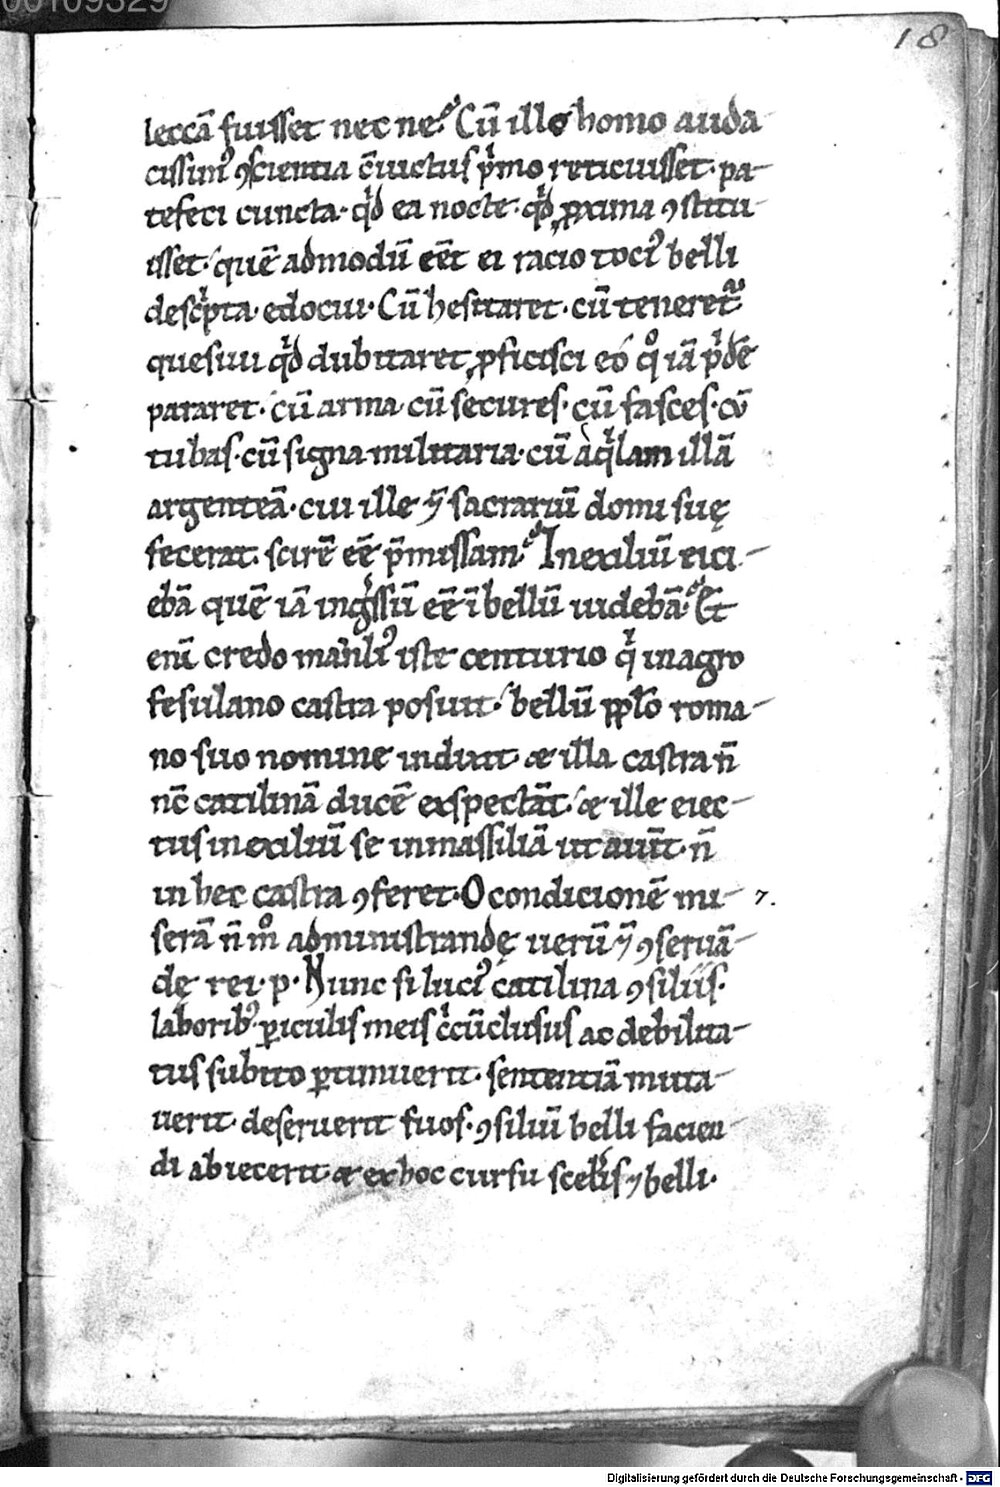 00109329
18
leccā fuisset nec ne. Cū ille homo auda
cissimꝰ ꝯscientia cōuictus pͥmo reticuisset. pa-
tefeci cuncta. qͥd ea nocte. qͥd ꝓxima ꝯstitu
isset. quē admodū eēt ei racio tociꝰ belli
descͥpta. edocui. Cū hesitaret. cū teneretᷣ
quesiui qͥd dubitaret ꝓficisci eo qͦ iā pͥdē
pararet. cū arma cū secures. cū fasces. cū
tubas. cū signa militaria. cū aqͥlam illā
argenteā. cui ille ⁊̄ sacrariū domi suę
fecerat. scirē eē p̄missam. In exiliū eici-
ebā quē iā ingͥssū eē ī bellū uidebā. Et
eni credo manliꝰ iste centurio qͥ in agro
fesulano castra posuit. bellū pplo roma-
no suo nomine indixit. æ illa castra n̄
nc̄ catilinā ducē exspectāt. æ ille eiec-
tus in exiliū se in massiliā ut aiūt. n̄
in hec castra ꝯferet. O condicionē mi- 7.
serā n̄ mͦ administrandę uerū ⁊̄ ꝯseruā-
dę rei. p. Nunc si luciꝰ catilina ꝯsiliis.
laboribꝰ. ꝑiculis meis cͥcūclusus ac debilita-
tus subito ꝑtimuerit. sententiā muta-
uerit. deseruerit suos. ꝯsiliū belli facien
di abiecerit. æ ex hoc cursu scelͥis ⁊ belli.
Digitalisierung gefördert durch die Deutsche Forschungsgemeinschaft - DFG